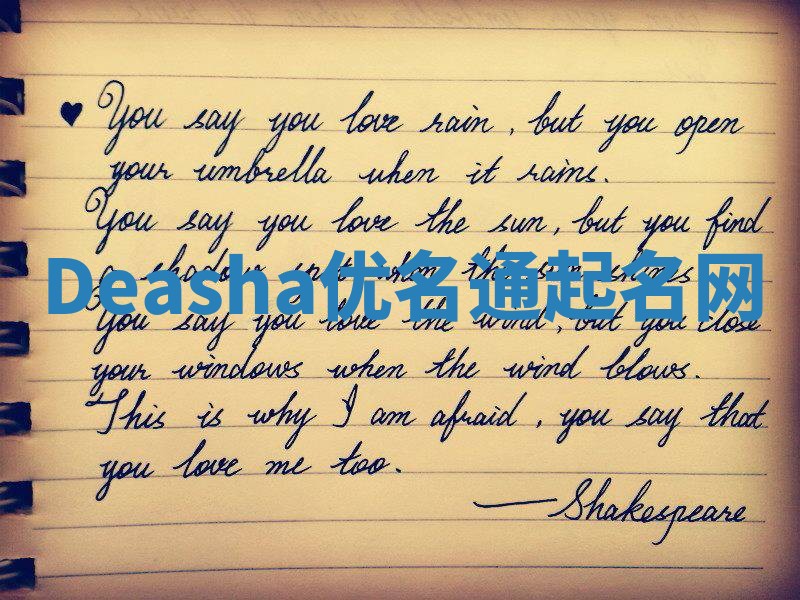 ♥ You say you love rain, but you open
your umbrella when it rains.
You say you love the sun, but you find
a shadow spot when the sun shines
Deasha优名通起名网
You say you love the wind, but you close
your windows when the wind blows.
This is why I am afraid, you say that
you love me too.
—Shakespeare